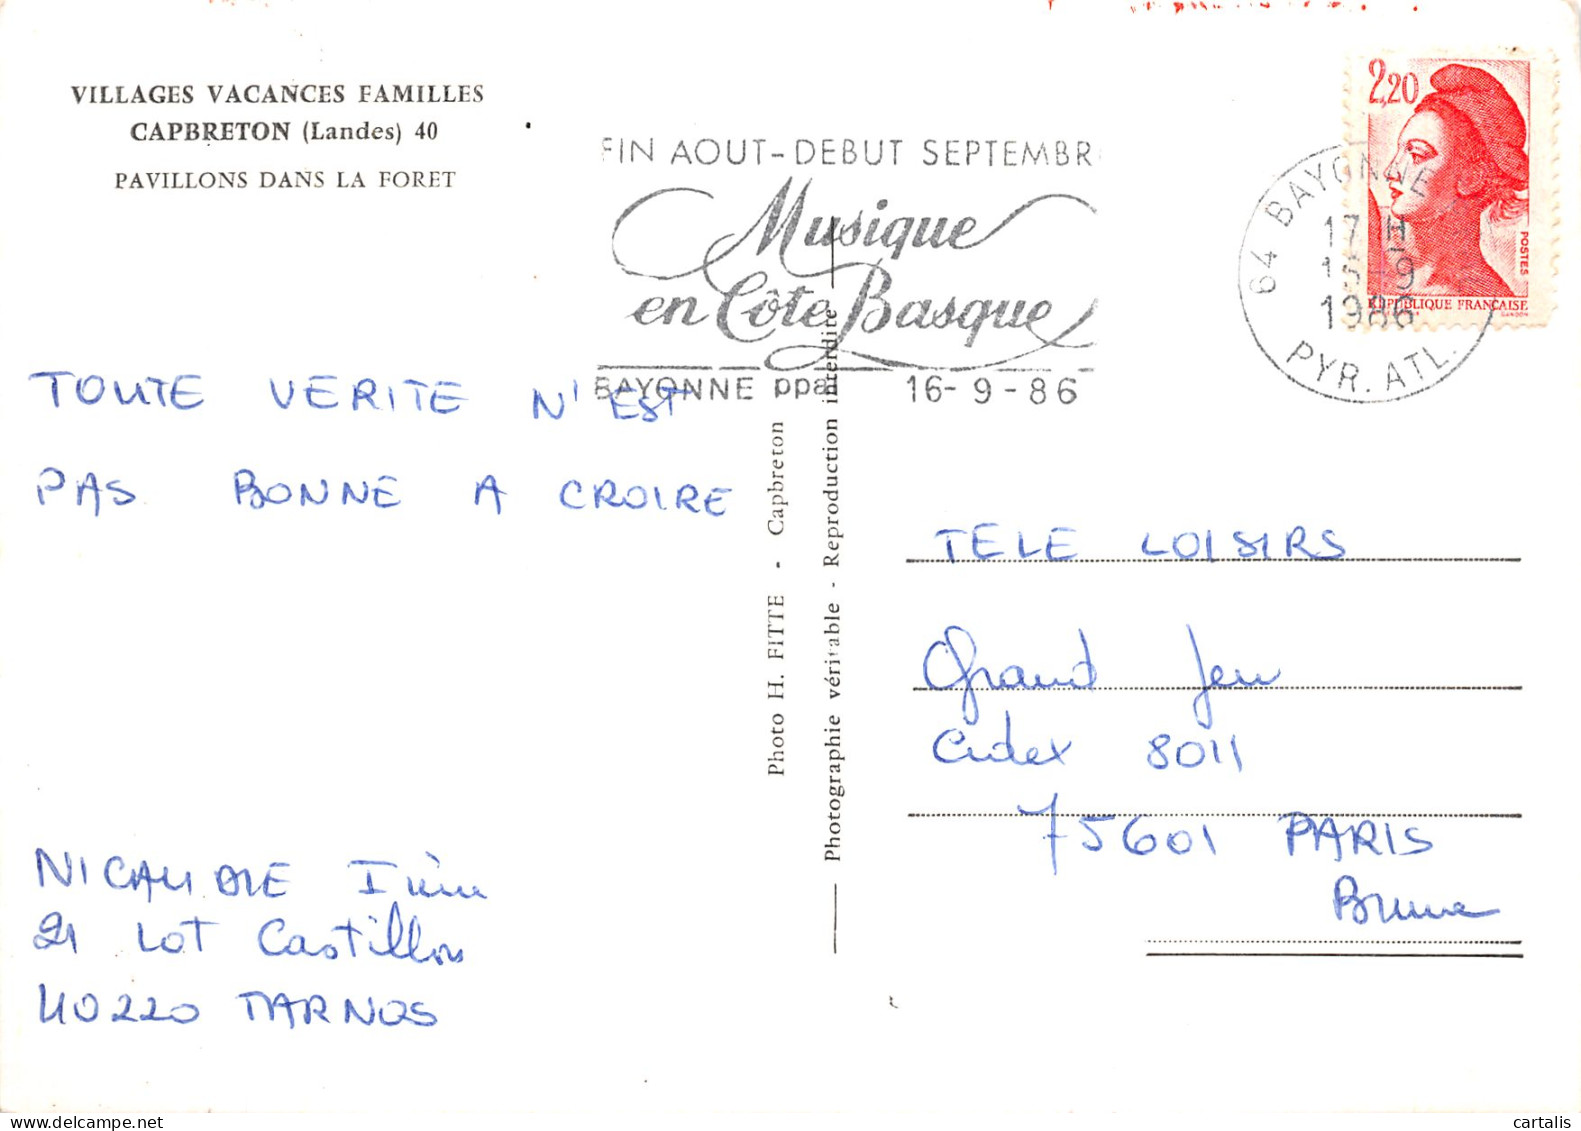 VILLAGES VACANCES FAMILLES
CAPBRETON (Landes) 40
PAVILLONS DANS LA FORET
FIN AOUT-DEBUT SEPTEMBR
Musique
en Côte Basque
BAYONNE ppal 16-9-86
2,20
POSTES
REPUBLIQUE FRANÇAISE
GANDON
64 BAYONNE
17 H
15-9
1986
PYR. ATL.
TOUTE VERITE N'EST
PAS BONNE A CROIRE
Photo H. FITTE - Capbreton
Photographie véritable - Reproduction interdite
TELE LOISIRS
Grand Jeu
Cidex 8011
75601 PARIS
Brune
21 LOT Castillon
40220 TARNOS
cartalis
www.delcampe.net